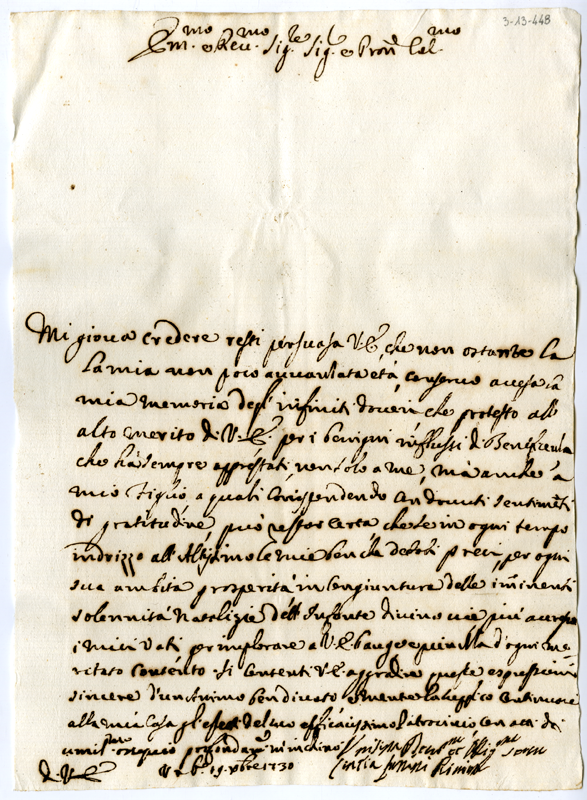 3-13-448
Em.mo e Reu.mo Sig.re Sig. e Pron Col.mo
Mi gioua credere resti persuasa V.E. che non ostante la
la mia non poco auuanzata età, conseruo accesa la
mia memoria degl'infiniti doueri che protesto all'
alto merito di V.E. per i benigni influssi di Beneficenza
che ha sempre apprestati non solo a me, mà anche a
mio Figlio a quali corrispondendo con douuti sentimenti
di gratitudine può restar certa che se in ogni tempo
indrizzo all'Altissimo le mie benche deboli preci per ogni
sua ambita prosperità in congiuntura delle imminenti
solennità Natalizie dell'Infante diuino uie più accresco
i miei Voti per implorare a V.E. d'ogni me
ritato contento. Si contenti V.E. aggradire queste espressioni
sincere d'un Animo ben diuoto e mentre la supplico continuare
alla mia Casa gl'effetti del suo efficacissimo Patrocinio con atti di
umil.mo ossequio profondam.te m'inchino
di V.E. 19 Xbre 1730